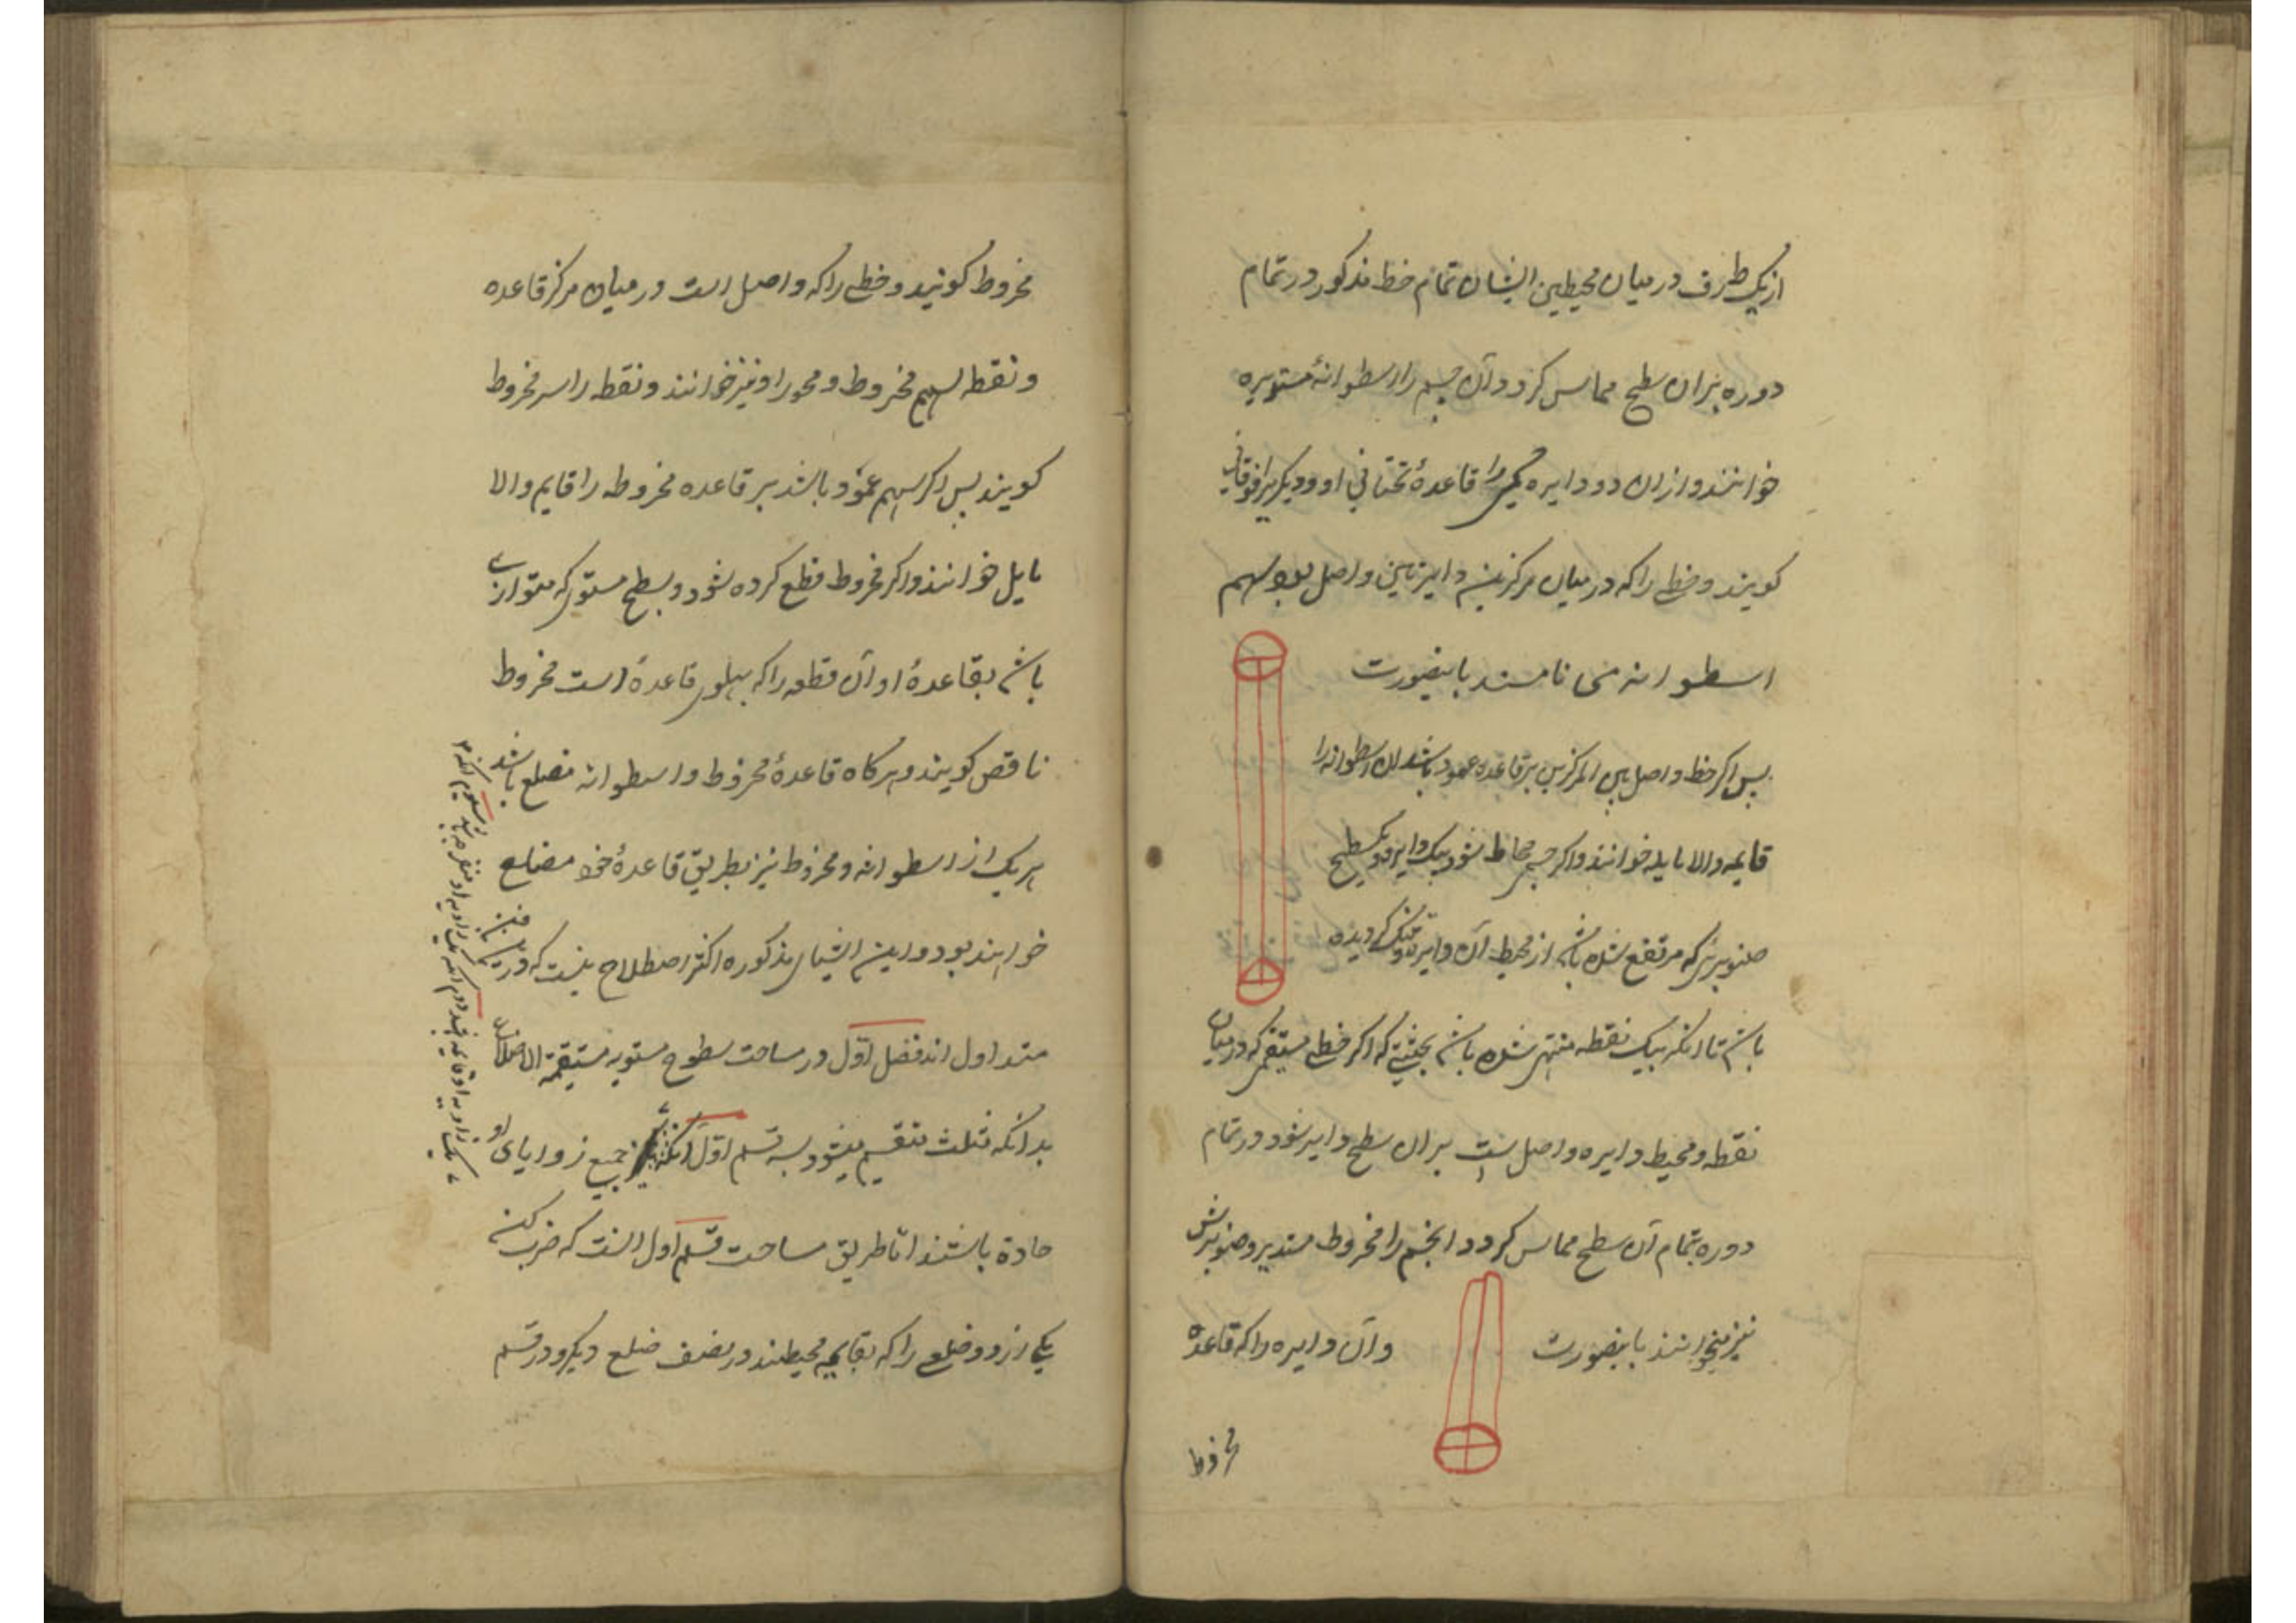 ازیک طرف در میان محیطین ایشان تمام خط مذکور در تمام
دوره بران سطح مماس کردد آن جسم را اسطوانهٔ مستدیره
خوانند و ازان دو دایره یکی را قاعدهٔ تحتانی او و دیکریرا فوقانی
کویند و خطی را که در میان مرکزین دایرتین واصل بود سهم
اسطوانه می نامند باینصورت
پس اکر خط واصل بین المرکزین بر قاعده عمود باشد ان اسطوانه را
قایمه والا مایله خوانند و اکر جسمی محاط شود بیک دایره و یک سطح
صنوبری که مرتفع شده باشد از محیط آن دایره و تنک کردیده
باشد تا انکه بیک نقطه منتهی شده باشد بحیثیتی که اکر خطی مستقیمی که در میان
نقطه و محیط دایره واصل است بران سطح دایر شود در تمام
دوره بتمام آن سطح مماس کردد انجسم را مخروط مستدیر و صنوبریش
نیز میخوانند باینصورت وآن دایره را که قاعدهٔ
مخروط
مخروط کویند و خطی را که واصل است در میان مرکز قاعده
و نقطه سهم مخروط و محور او نیز خوانند و نقطه را سر مخروط
کویند پس اکر سهم عمود باشد بر قاعده مخروطه را قایم والا
مایل خوانند و اکر مخروط قطع کرده شود و بسطح مستوی که متوازی
باشد بقاعدهٔ او آن قطعه را که پهلوی قاعدهٔ است مخروط
ناقص کویند و هرکاه قاعدهٔ مخروط و اسطوانه مضلع باشد
هریک از اسطوانه و مخروط نیز بطریق قاعدهٔ خود مضلع
خواهند بود و این اشیای مذکوره اکثر اصطلاح نیست که در
متداول اند فصل اول در مساحت سطوح مستویه مستقیمة الاضلاع
بدانکه مثلث منقسم میشود بسه قسم اول انکه جمیع زوایای او
حادة باشند اما طریق مساحت قسم اول انست که ضرب کنند
یکی از دو ضلعی را که بقایمه محیطند در نصف ضلع دیکر و در قسم
یک زاویه او قایمه باشد دوم انکه یک زاویه او منفرجه باشد سیوم انکه